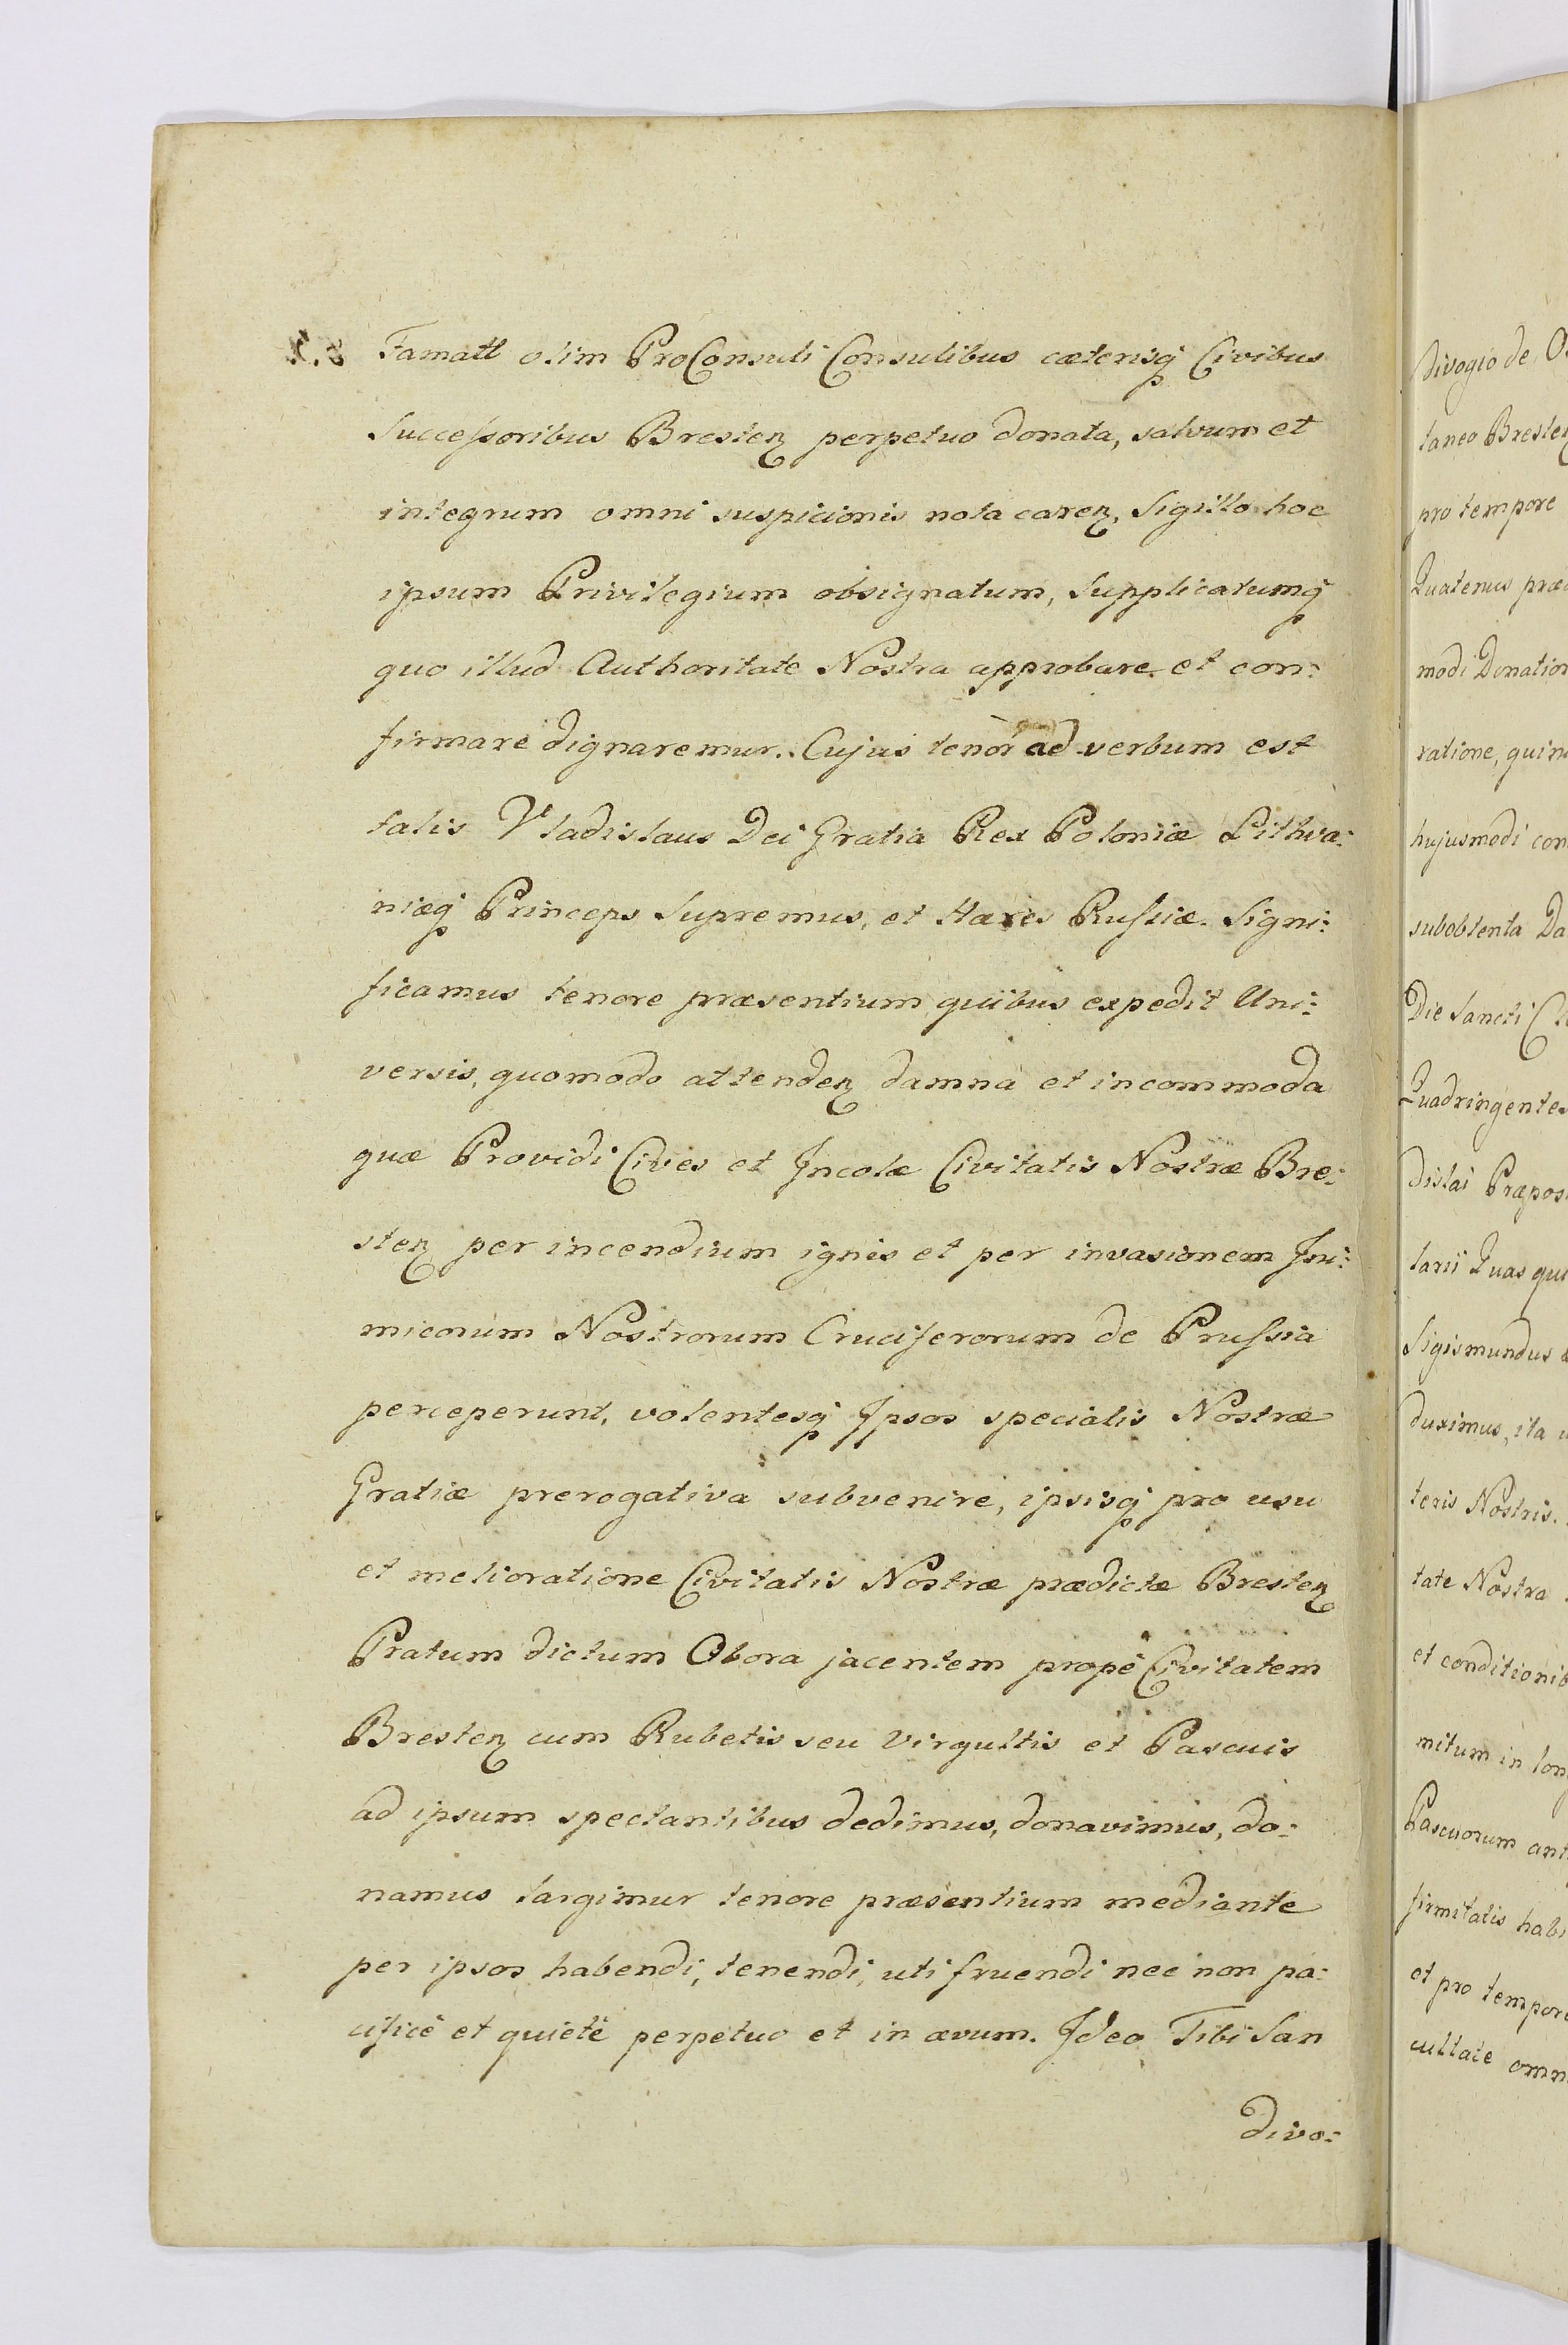 Famatt olim ProConsuli Consulibus cæterisq̃ Civibus
Successoribus Bresteñ perpetuo donata, salvum et
integrum omni suspicionis nota careñ, Sigillo hoc
ipsum Privilegium obsignatum, Supplicatumq̃
quo illud Authoritate Nostra approbare et con:
firmare dignaremur. Cujus tenor ad verbum est
talis Vladislaus Dei Gratia Rex Poloniæ Lithva:
niæq̃ Princeps Supremus, et Hæres Russiæ. Signi:
ficamus tenore præsentium quibus expedit Uni:
versis, quomodo attendeñ damna et incommoda
quæ Providi Cives et Incolæ Civitatis Nostræ Bre:
steñ per incendium ignis et per invasionem Ini:
micorum Nostrorum Cruciferorum de Prussia
perceperunt, volentesq̃ Ipsos specialis Nostræ
Gratiæ prerogativa subvenire, ipsisq̃ pro usu
et melioratione Civitatis Nostræ prædictæ Bresteñ
Pratum dictum Obora jacentem propè Civitatem
Bresteñ cum Rubetis seu Virgultis et Pascuis
ad ipsum spectantibus dedimus, donavimus, do:
namus largimur tenore præsentium mediante
per ipsos habendi, tenendi, uti fruendi nec non pa:
cificè et quietè perpetuo et in ævum. Ideo Tibi San
divo:
divogio de
taneo Bresteñ
pro tempore
Quatenus
modi Donation
ratione,
hujusmodi con
subobtenta Da
Die Sancti
Quadringentes
dislai Præpos
tarii Quas qui
Sigismundus
duximus, ita
teris Nostris.
tate Nostra
et conditionib
mitum in lon
Pascuorum ant
firmitatis habi
et pro tempore
cultate omn